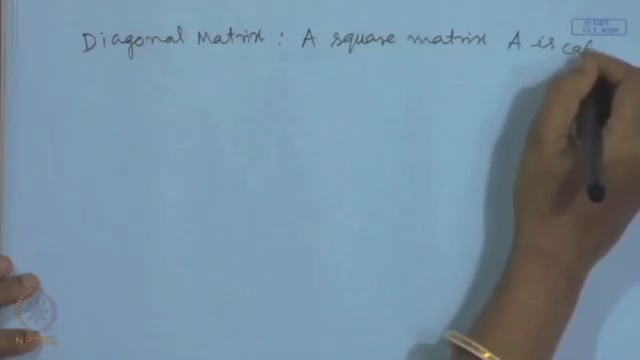 Diagonal Matrix : A square matrix A is cal
NPTEL